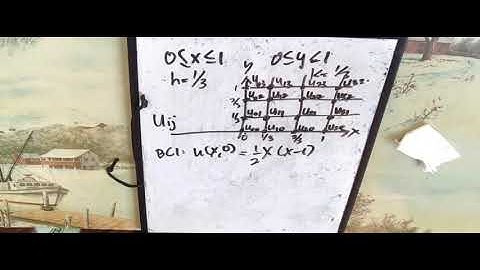 0≤x≤1 0≤y≤1
h=1/3 K=1/3
y
1 u03 u13 u23 u33
2/3 u02 u12 u22 u32
1/3 u01 u11 u21 u31
Uij u00 u10 u20 u30 x
0 1/3 2/3 1
BC1: u(x,0) = 1/2 x (x-1)